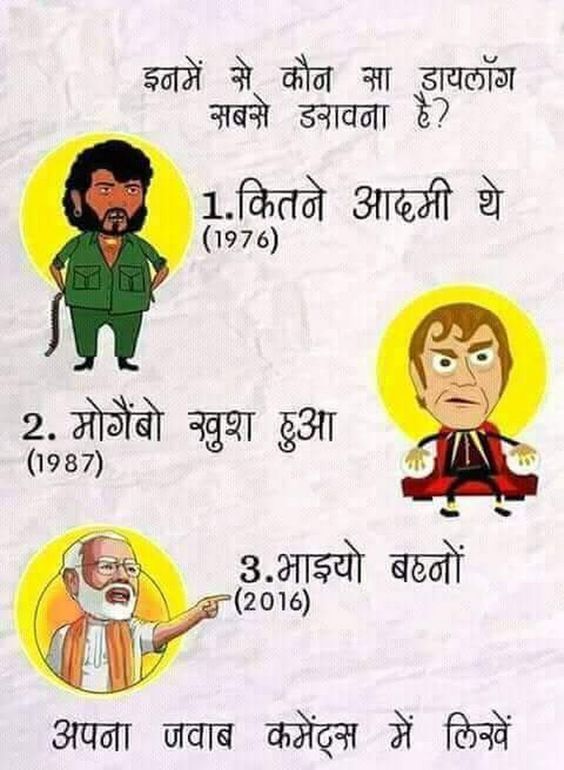 इनमें से कौन सा डायलॉग
सबसे डरावना है?
1.कितने आदमी थे
(1976)
2. मोगैंबो खुश हुआ
(1987)
3.भाइयो बहनों
(2016)
अपना जवाब कमेंट्स में लिखें